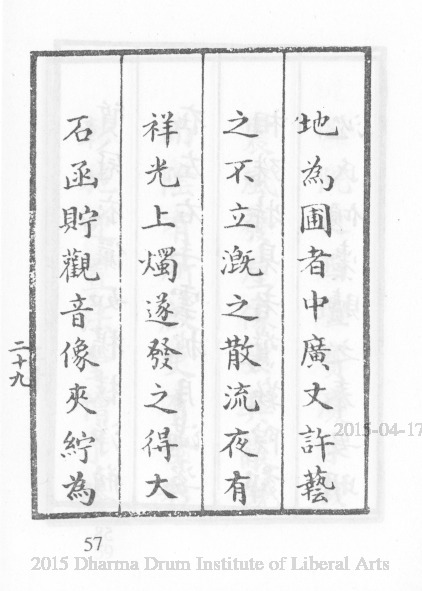 地為圃者中廣丈許藝
之不立溉之散流夜有
祥光上燭遂發之得大
石函貯觀音像夾紵為
二十九
57
2015-04-17
2015 Dharma Drum Institute of Liberal Arts